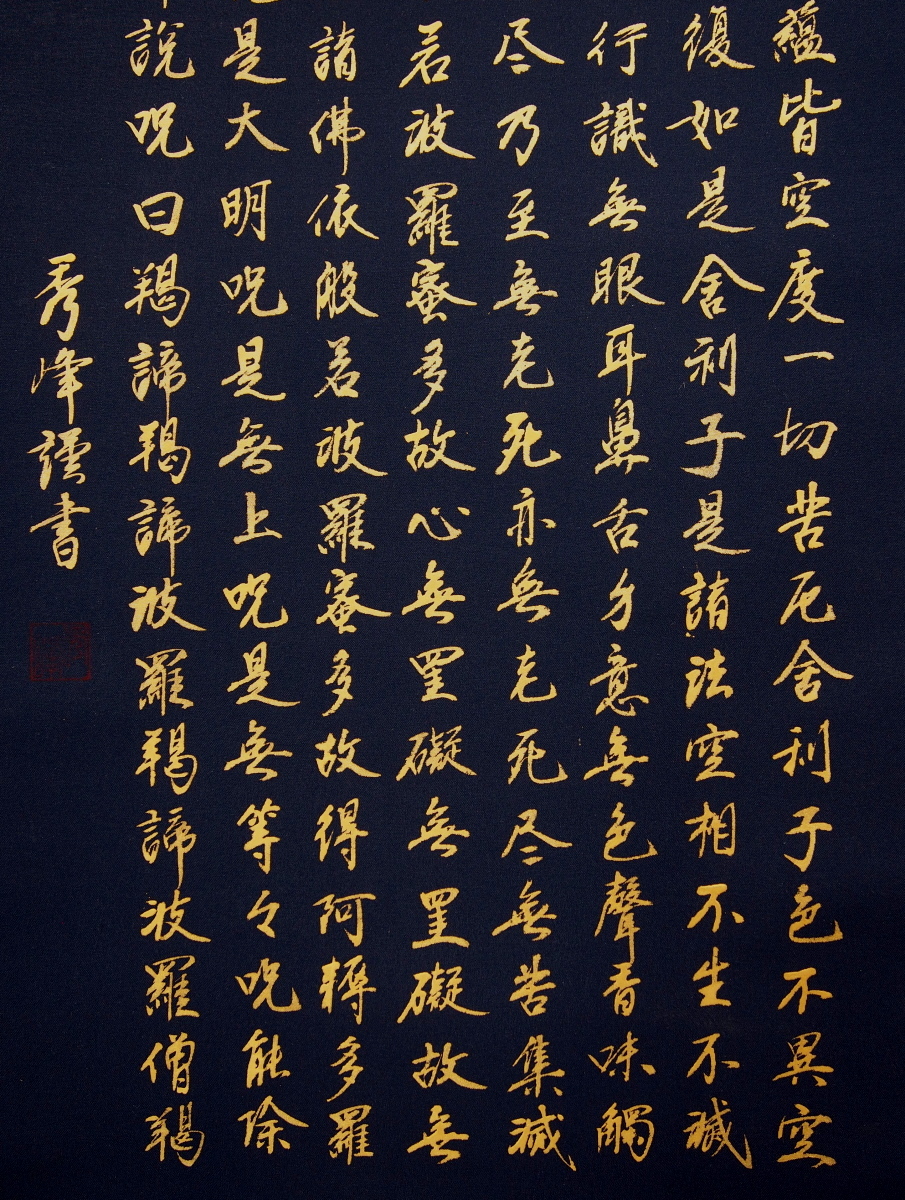 蘊皆空度一切苦厄舍利子色不異空
復如是舍利子是諸法空相不生不滅
行識無眼耳鼻舌身意無色聲香味觸
尽乃至無老死亦無老死尽無苦集滅
若波羅蜜多故心無罣礙無罣礙故無
諸佛依般若波羅蜜多故得阿耨多羅
是大明呪是無上呪是無等々呪能除
說呪曰羯諦羯諦波羅羯諦波羅僧羯
秀峰謹書